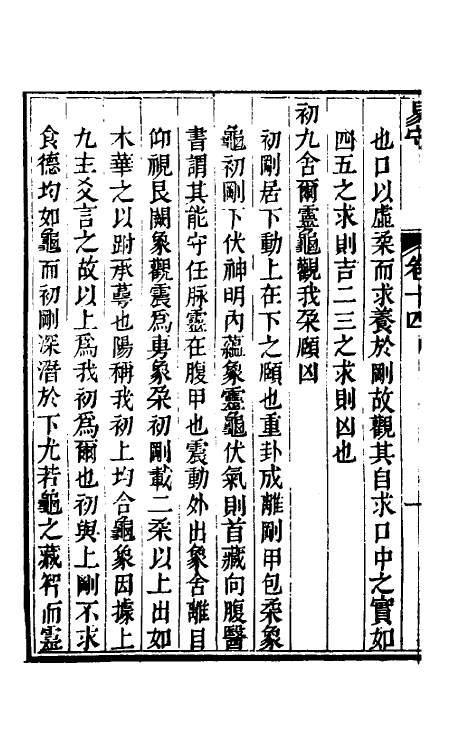 易守 卷十四 一
也口以虛柔而求養於剛故觀其自求口中之實如
四五之求則吉二三之求則凶也
初九舍爾靈龜觀我朶頤凶
初剛居下動上在下之頤也重卦成離剛甲包柔象
龜初剛下伏神明內蘊象靈龜伏氣則首藏向腹醫
書謂其能守任脉靈在腹甲也震動外出象舍離目
仰視艮闕象觀震爲旉象朶初剛載二柔以上出如
木華之以跗承蕚也陽稱我初上均合龜象因據上
九主爻言之故以上爲我初爲爾也初與上剛不求
食德均如龜而初剛深潛於下尤若龜之藏智而靈